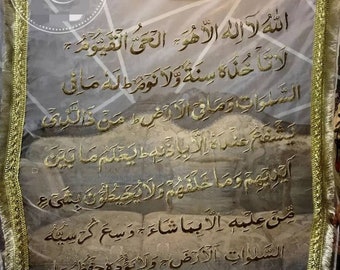 اللهُ لَا إِلٰهَ إِلَّا هُوَ الْحَيُّ الْقَيُّومُ
لَا تَأْخُذُهُ سِنَةٌ وَّلَا نَوْمٌ ط لَهُ مَا فِي
السَّمٰوٰتِ وَمَا فِي الْأَرْضِ ط مَنْ ذَا الَّذِي
يَشْفَعُ عِنْدَهُ إِلَّا بِإِذْنِهِ ط يَعْلَمُ مَا بَيْنَ
أَيْدِيْهِمْ وَمَا خَلْفَهُمْ وَلَا يُحِيْطُوْنَ بِشَيْءٍ
مِّنْ عِلْمِهِ إِلَّا بِمَا شَاءَ وَسِعَ كُرْسِيُّهُ
السَّمٰوٰتِ وَالْأَرْضَ وَلَا يَئُوْدُهُ حِفْظُهُمَا